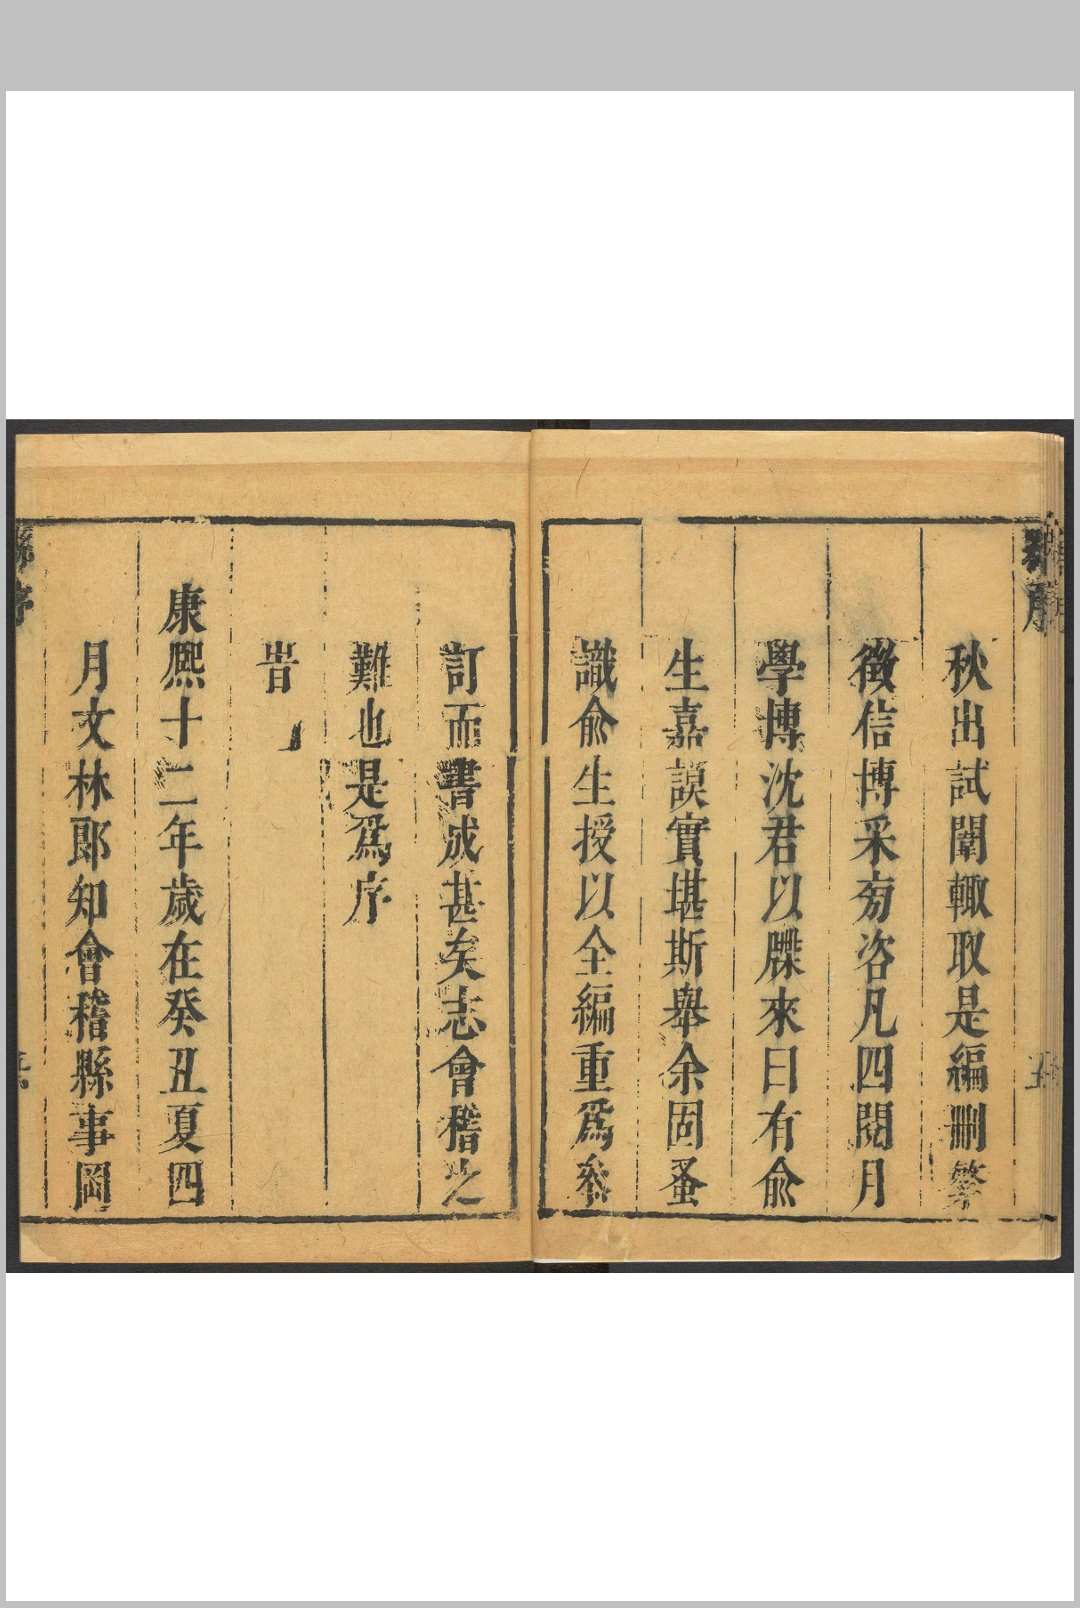 秋出試闈輙取是編刪繁
徴信博采旁咨凡四閱月
學博沈君以牒來曰有俞
生嘉謨實堪斯舉余固蚤
識俞生授以全編重爲叅
訂而書成甚矣志會稽之
難也是爲序
旹
康熈十二年歲在癸丑夏四
月文林郎知會稽縣事岡